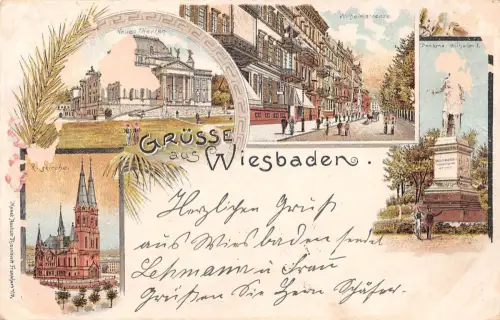 Neues Theater
Wilhelmstrasse
Denkmal Wilhelm I.
GRÜSSE
aus Wiesbaden.
Herzlichen Gruß
aus Wiesbaden sendet
Lehmann u Frau
Grüßen Sie Herrn Schäfer.